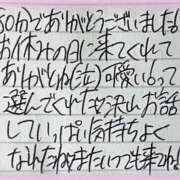 60分でありがとうございました!
お休みの日に来てくれて
ありがとね(注)可愛いって
選んでくれた 沢山お話
していっぱい気持ちよく
なれたね また いつでも来てね!